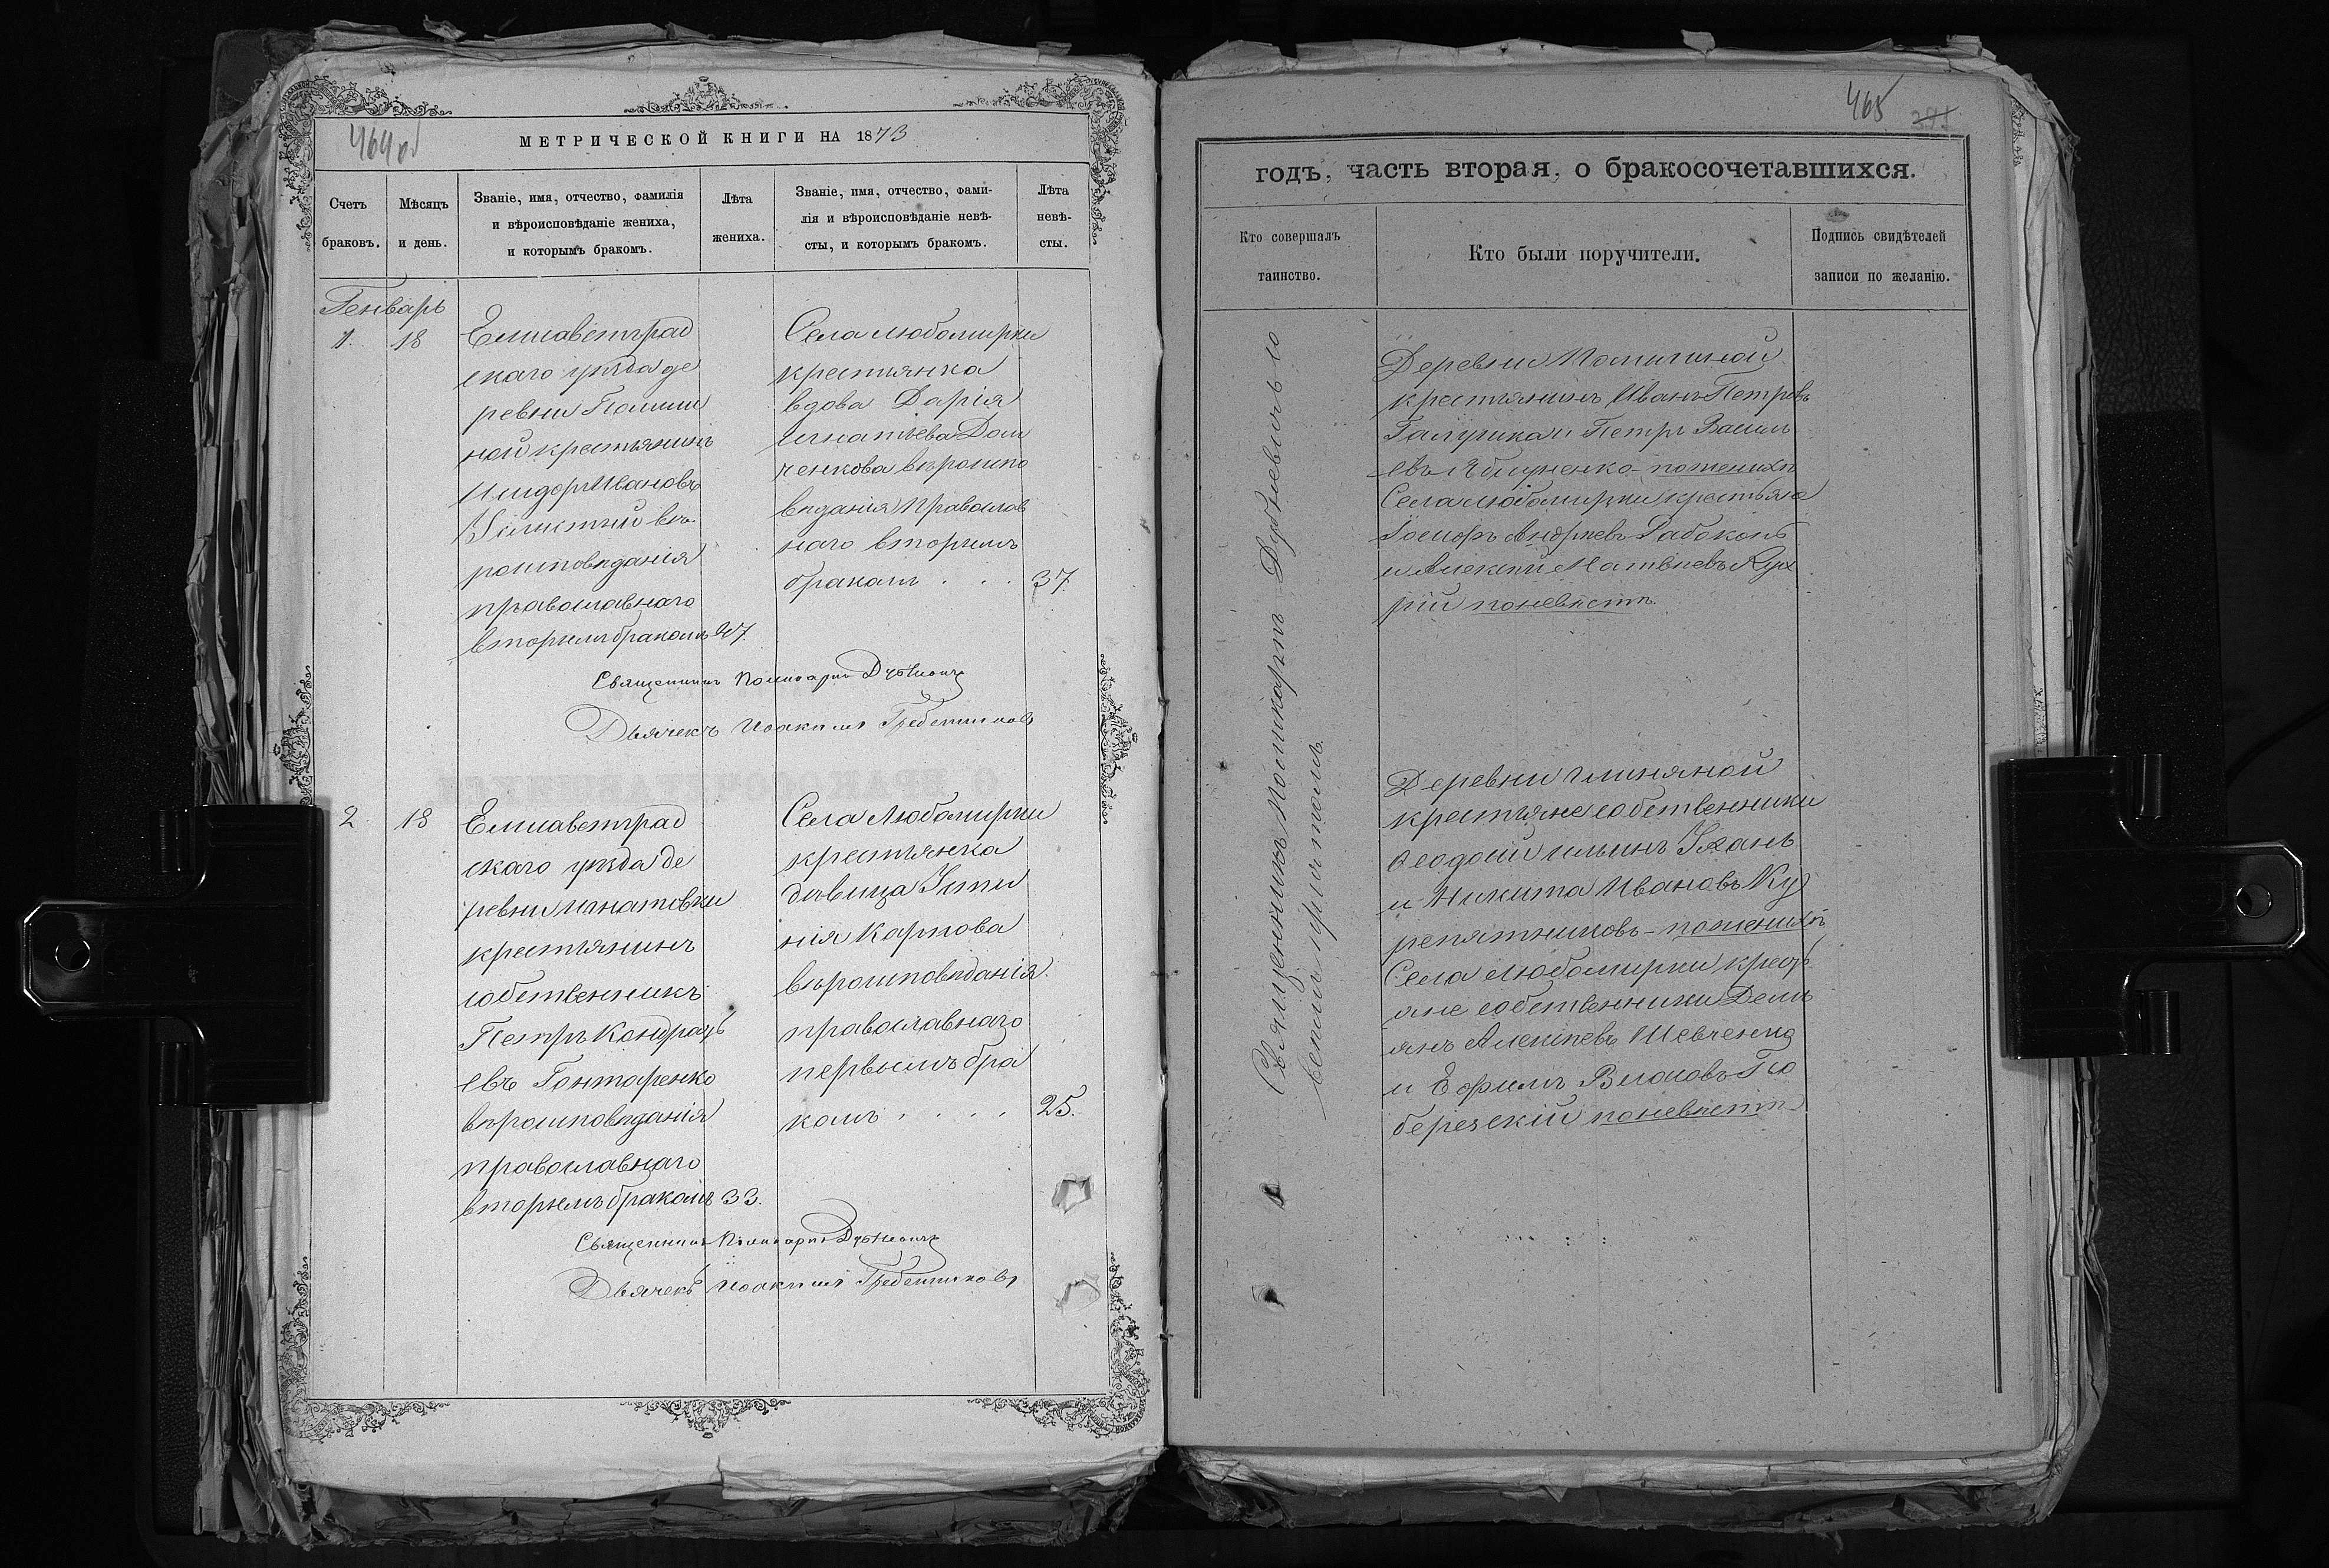 464 об
МЕТРИЧЕСКОЙ КНИГИ НА 1873
Счетъ браковъ.
Мѣсяцъ и день.
Званіе, имя, отчество, фамилія
и вѣроисповѣданіе жениха,
и которымъ бракомъ.
Лѣта жениха.
Званіе, имя, отчество, фами-
лія и вѣроисповѣданіе невѣ-
сты, и которымъ бракомъ.
Лѣта невѣ-
сты.
Генварь
1. 18
Елисаветград
скаго уѣзда де
ревни Помош
ной крестьянинъ
Исидоръ Ивановъ
вѣ
роисповѣданія
православнаго
вторымъ бракомъ 47.
Села Любомирки
крестьянка
вдова Дарія
Игнатьева Дом
ченкова вѣроиспо
вѣданія православ
наго вторымъ
бракомъ . . . 37
Священникъ Поликарпъ Дубневичъ
Дьячекъ Иоакимъ Гребенников
2 18
Елисаветград
скаго уѣзда де
ревни Игнатовки
крестьянинъ
собственникъ
Петръ Кондрать
евъ Гонтаренко
вѣроисповѣданія
православнаго
вторымъ бракомъ 33.
Села Любомирки
крестьянка
дѣвица
нія Карпова
вѣроисповѣданія
православнаго
первымъ бра
комъ . . . . 25.
Священникъ Поликарпъ Дубневичъ
Дьячекъ Иоакимъ Гребенниковъ
465
годъ, часть вторая, о бракосочетавшихся.
Кто совершалъ
таинство.
Кто были поручители.
Подпись свидѣтелей
записи по желанію.
Священникъ Поликарпъ Дубневичъ со
всемъ причтомъ.
Деревни Помошной
крестьянинъ Иванъ Петровъ
Галушка и Петръ Василь
евъ Яблуненко - по женихѣ
Села Любомирки крестьяне
Іосифъ Андреевъ Рабоконь
и Алексѣй Матвѣевъ
рій по невѣстѣ.
Деревни Глиняной
крестьяне собственники
Ѳеодосій Ильинъ
и Никита Ивановъ Ку
репятниковъ - по женихѣ
Села Любомирки кресть
яне собственники Демь
янъ Алексѣевъ Шевченко
и Ефимъ Власовъ
бережскій по невѣстѣ